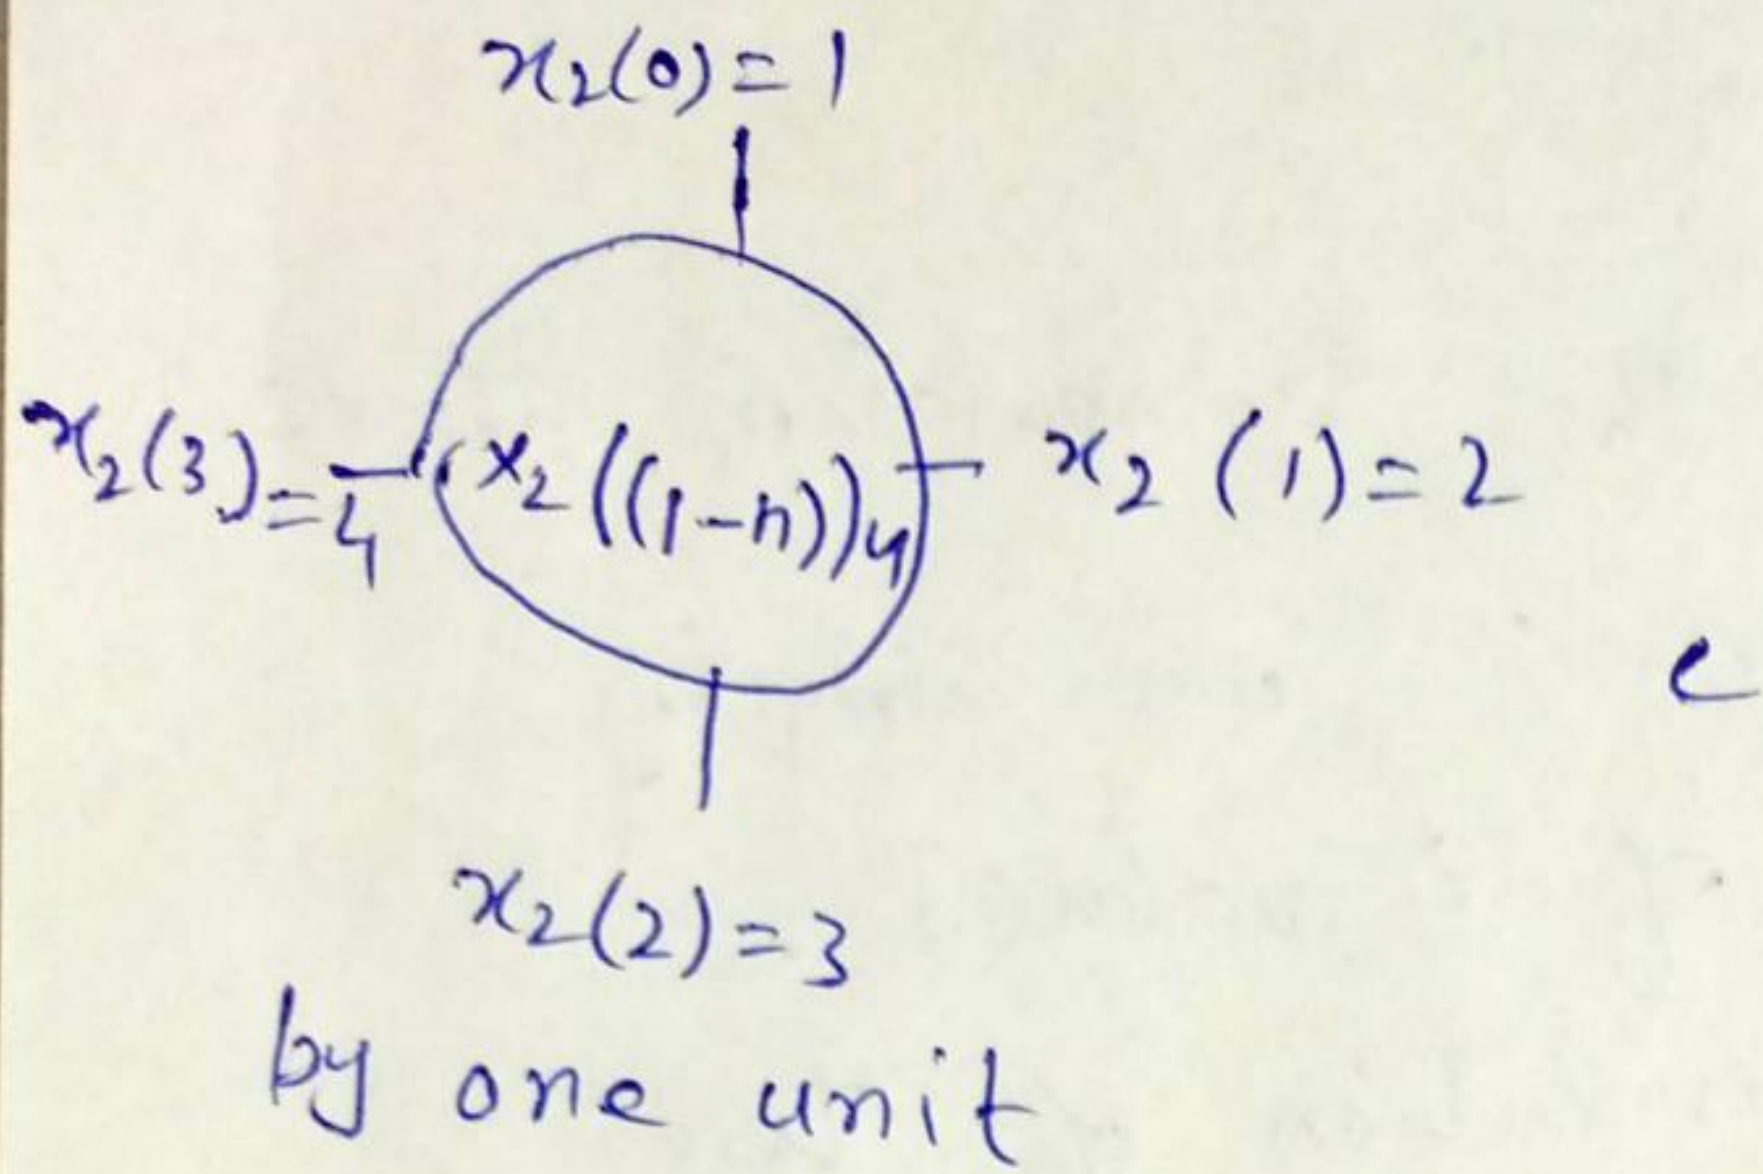 x₂(0) = 1
x₂(3) = 4
x₂((1-n))₄
x₂(1) = 2
x₂(2) = 3
by one unit